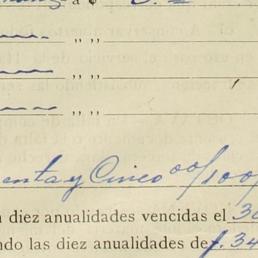 a $
" "
" "
" "
enta y Cinco 00/100
n diez anualidades vencidas el 30
ndo las diez anualidades de $. 34